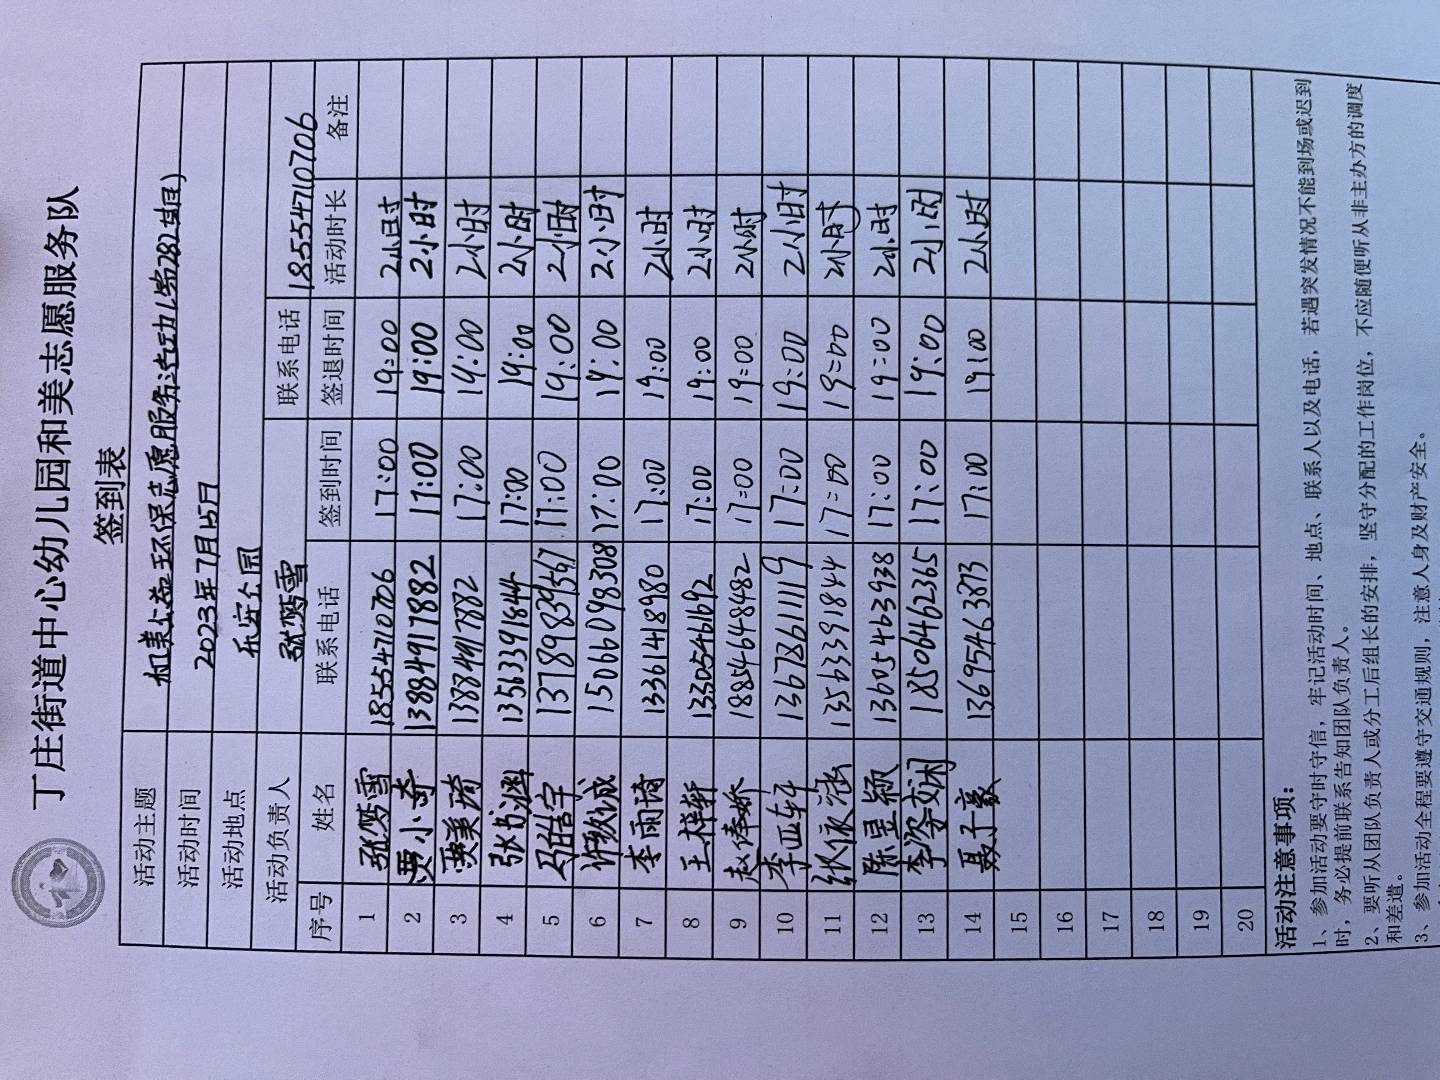 丁庄街道中心幼儿园和美志愿服务队
签到表
活动主题 和美公益环保志愿服务活动(第282期)
活动时间 2023年7月15日
活动地点 乐安公园
活动负责人 张梦雪 联系电话 18554710706
序号 姓名 联系电话 签到时间 签退时间 活动时长 备注
1 张梦雪 18554710706 17:00 19:00 2小时
2 贾小奇 13884917882 17:00 19:00 2小时
3 贾美琦 13884917882 17:00 19:00 2小时
4 张书渊 13563391844 17:00 19:00 2小时
5 马皓宇 13789839567 17:00 19:00 2小时
6 许钦诚 15066098308 17:00 19:00 2小时
7 李雨琦 1336148980 17:00 19:00 2小时
8 王梓轩 13305461692 17:00 19:00 2小时
9 赵俸娇 18854648482 17:00 19:00 2小时
10 李亚轩 13678611119 17:00 19:00 2小时
11 张依涵 13563391844 17:00 19:00 2小时
12 陈昱颖 13605463938 17:00 19:00 2小时
13 李姿娴 18506462365 17:00 19:00 2小时
14 聂子豪 13695463873 17:00 19:00 2小时
15
16
17
18
19
20
活动注意事项：
1、参加活动要守时守信，牢记活动时间、地点、联系人以及电话，若遇突发情况不能到场或迟到
时，务必提前联系告知团队负责人。
2、要听从团队负责人或分工后组长的安排，坚守分配的工作岗位，不应随便听从非主办方的调度
和差遣。
3、参加活动全程要遵守交通规则，注意人身及财产安全。